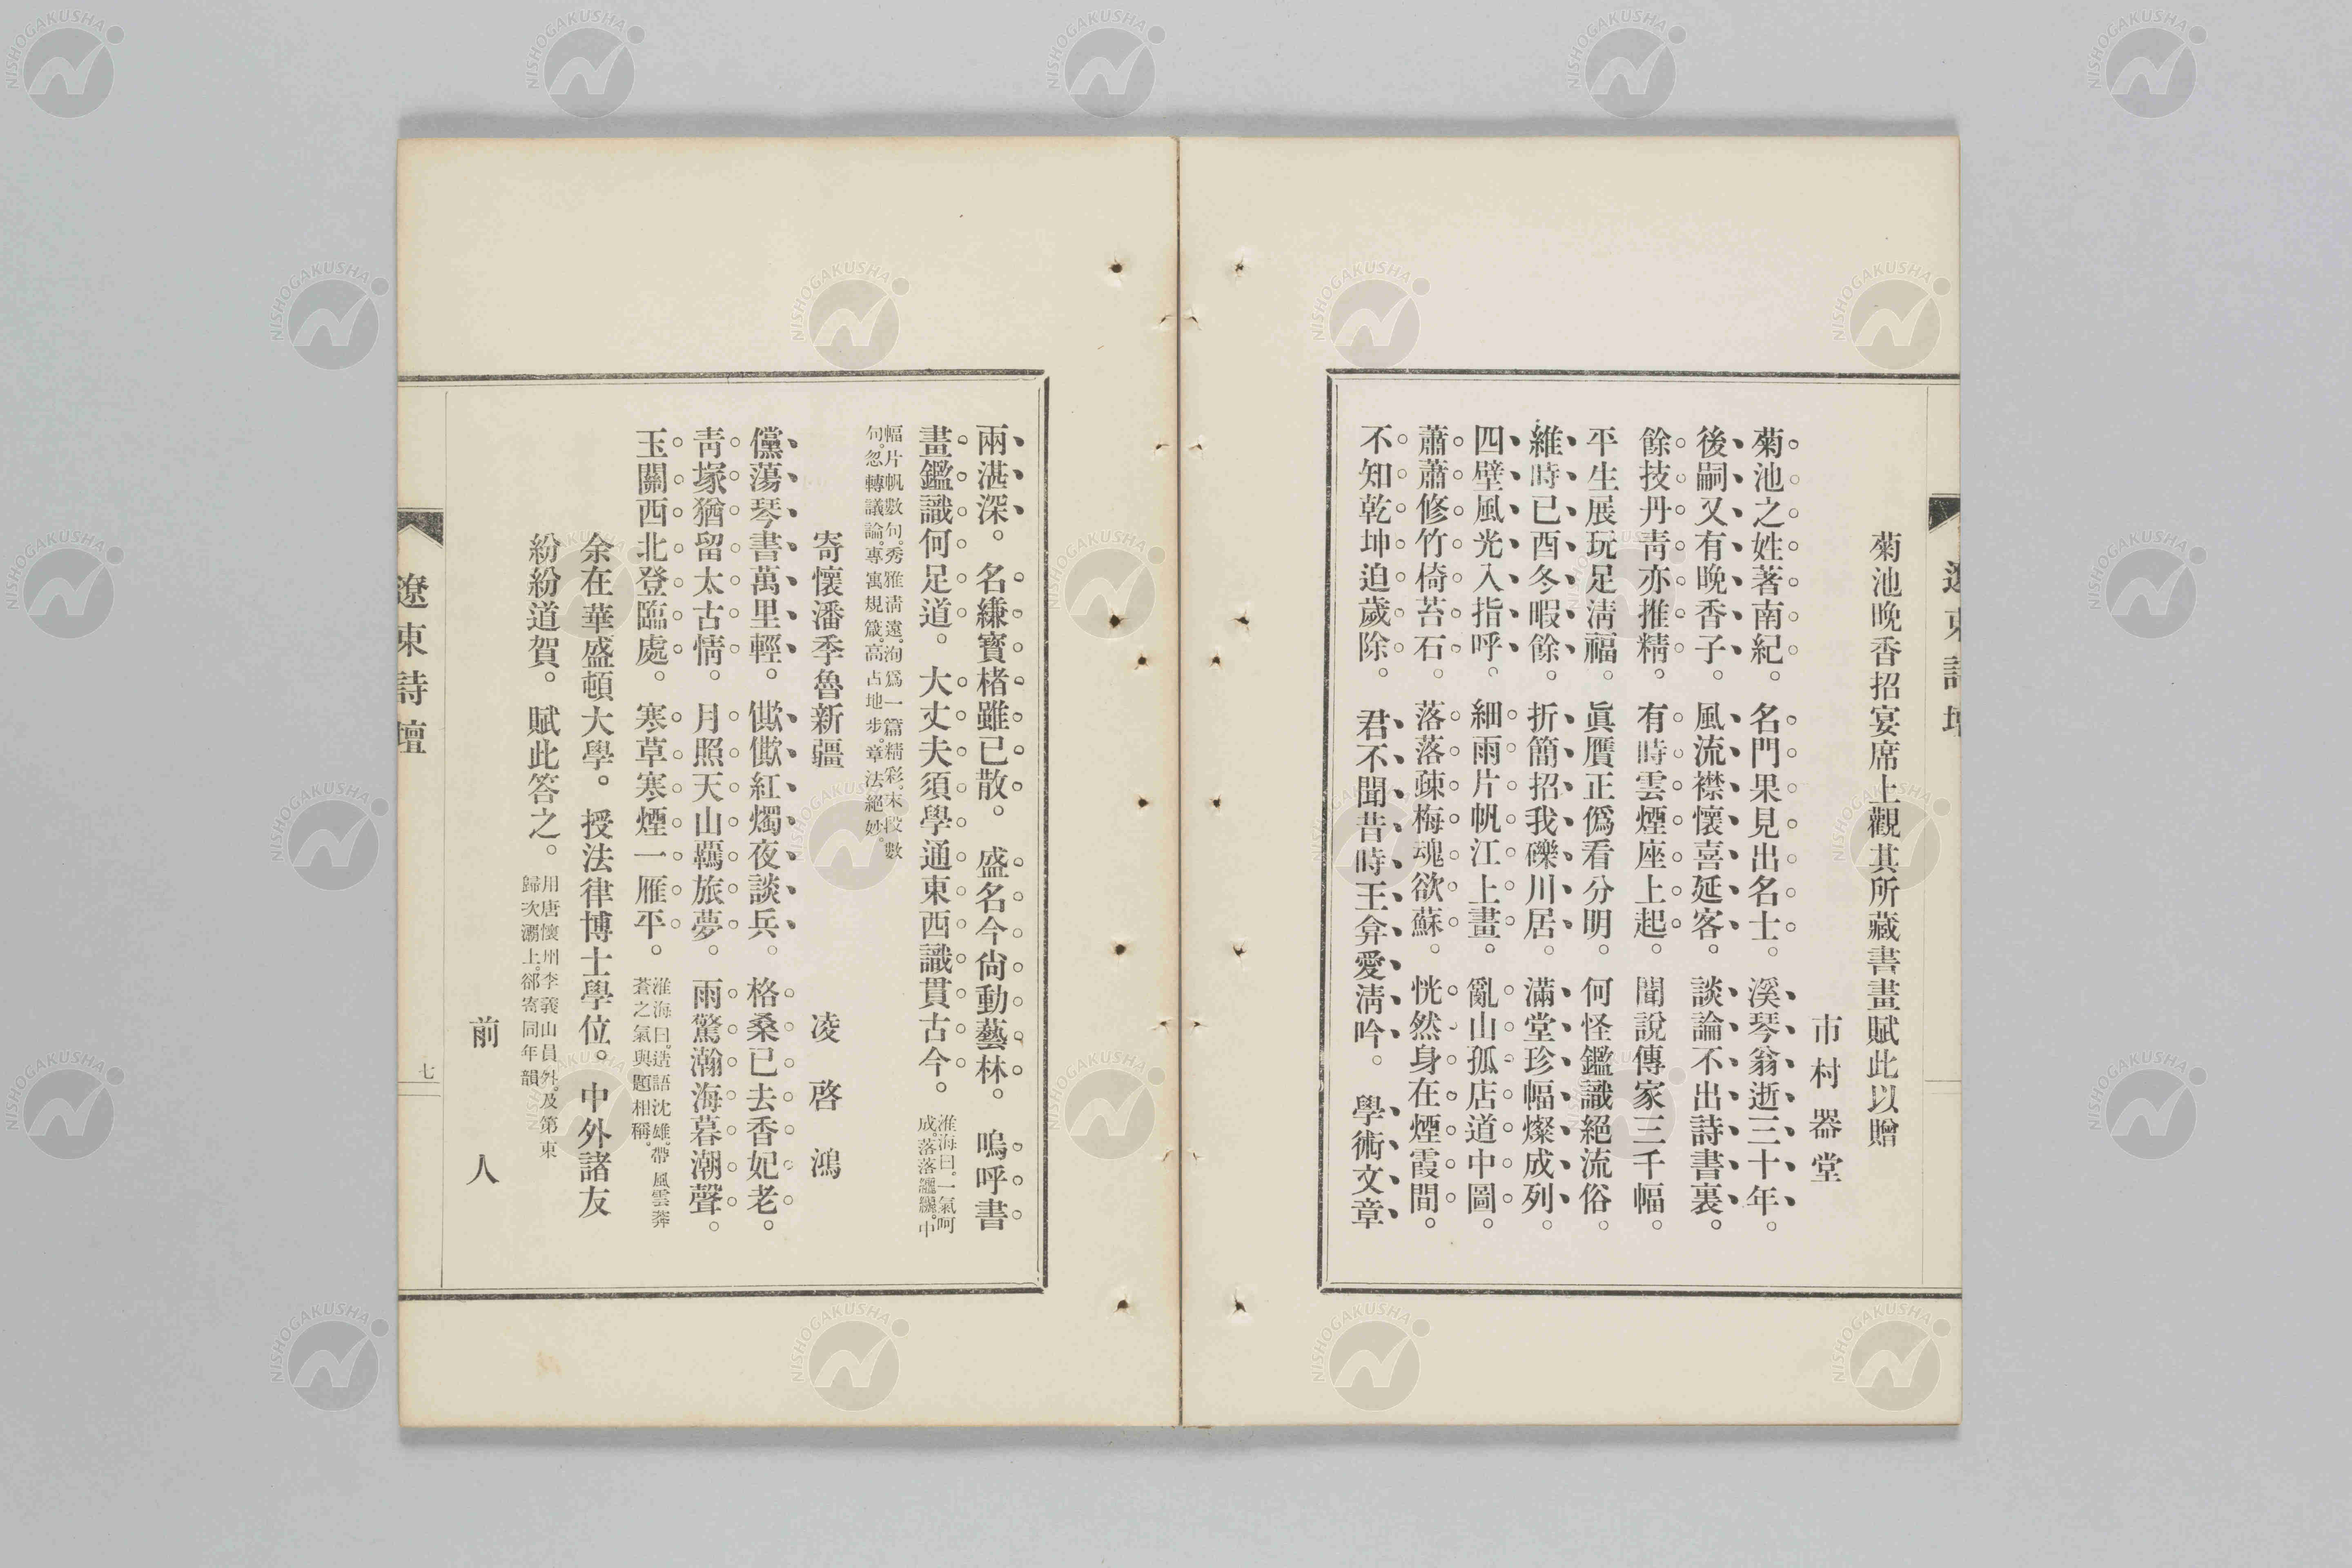 菊池晚香招宴席上觀其所藏書畫賦此以贈
市村器堂
菊池之姓著南紀。名門果見出名士。溪琴翁逝三十年。
後嗣又有晚香子。風流襟懷喜延客。談論不出詩書裏。
餘技丹靑亦推精。有時雲煙座上起。聞說傳家三千幅。
平生展玩足淸福。眞贋正僞看分明。何怪鑑識絕流俗。
維時已酉冬暇餘。折簡招我礫川居。滿堂珍幅燦成列。
四壁風光入指呼。細雨片帆江上畫。亂山孤店道中圖。
蕭蕭修竹椅苔石。落落疎梅魂欲蘇。恍然身在煙霞間。
不知乾坤迫歲除。君不聞昔時王弇愛淸吟。學術文章
遼東詩壇
兩湛深。名縑寳楮雖已散。盛名今尙動藝林。嗚呼書
畫鑑識何足道。大丈夫須學通東西識貫古今。
淮海曰。一氣呵
成。落落灑灑。中
幅片帆數句。秀雅淸遠。洵爲一篇精彩。末段數
句。忽轉議論。專寓規箴。高占地步。章法絕妙。
寄懷潘季魯新疆
凌啓鴻
儻蕩琴書萬里輕。僛僛紅燭夜談兵。格桑已去香妃老。
靑塚猶留太古情。月照天山羈旅夢。雨驚瀚海暮潮聲。
玉關西北登臨處。寒草寒煙一雁平。
淮海曰。造語沈雄。帶風雲莽
蒼之氣與題相稱。
余在華盛頓大學。授法律博士學位。中外諸友
紛紛道賀。賦此答之。
用唐懷州李義山員外。及第東
歸次灞上。郤寄同年韻
前人
遼東詩壇
七
NISHOGAKUSHA